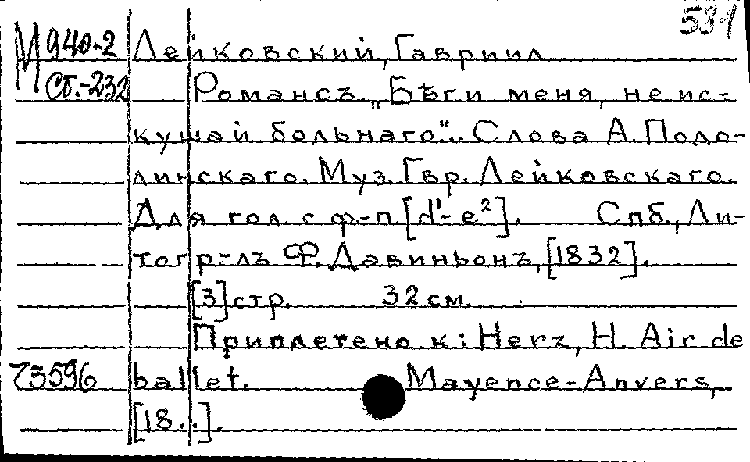 531
М 940-2 Лейковский, Гавриил
Сб.-232 Романсъ „Бѣги меня, не ис-
кушай больнаго“. Слова А. Поло-
линскаго. Муз. Гвр. Лейковскаго.
Для гол. с ф-п [d¹-e²]. Спб., Ли-
тогр-лъ Ф. Давиньонъ, [1832].
[3] стр. 32 см.
Приплетено к: Herz, H. Air de
73596 ballet. Mayence-Anvers,
[18..].